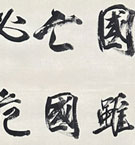 國雖
亡國
必危